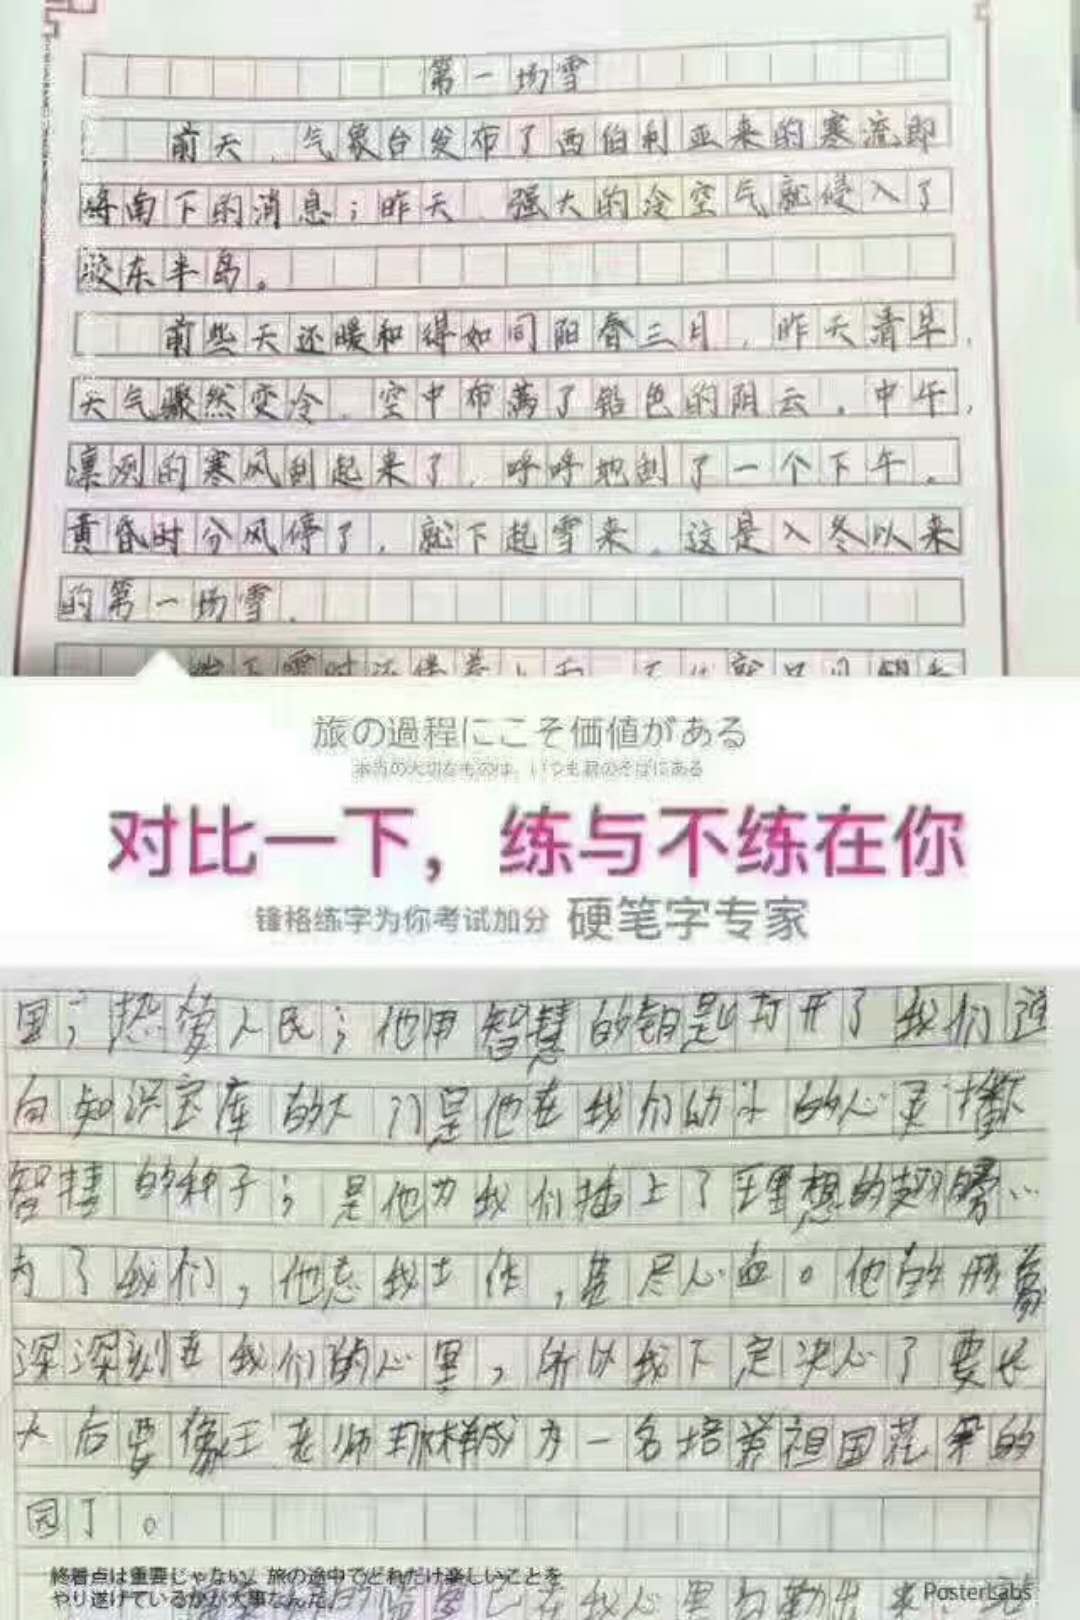 第一场雪
前天,气象台发布了西伯利亚来的寒流即
将南下的消息;昨天,强大的冷空气就侵入了
胶东半岛。
前些天还暖和得如同阳春三月,昨天清早,
天气骤然变冷,空中布满了铅色的阴云。中午,
凛冽的寒风刮起来了,呼呼地刮了一个下午。
黄昏时分风停了,就下起雪来。这是入冬以来
的第一场雪.
旅の過程にこそ価値がある
本当の大切なものは、いつも君のそばにある
对比一下,练与不练在你
锋格练字为你考试加分 硬笔字专家
里;热爱人民;他用智慧的钥匙打开了我们通
向知识宝库的大门是他在我们幼小的心灵播
智慧的种子;是他为我们插上了理想的翅膀…
为了我们,他忘我工作,费尽心血。他的形象
深深刻在我们的心里,所以我下定决心了要长
大后要像王老师那样成为一名培养祖国花朵的
园丁。
終着点は重要じゃない、旅の途中でどれだけ楽しいことを
やり遂げているかが大事なんだ。
PosterLabs